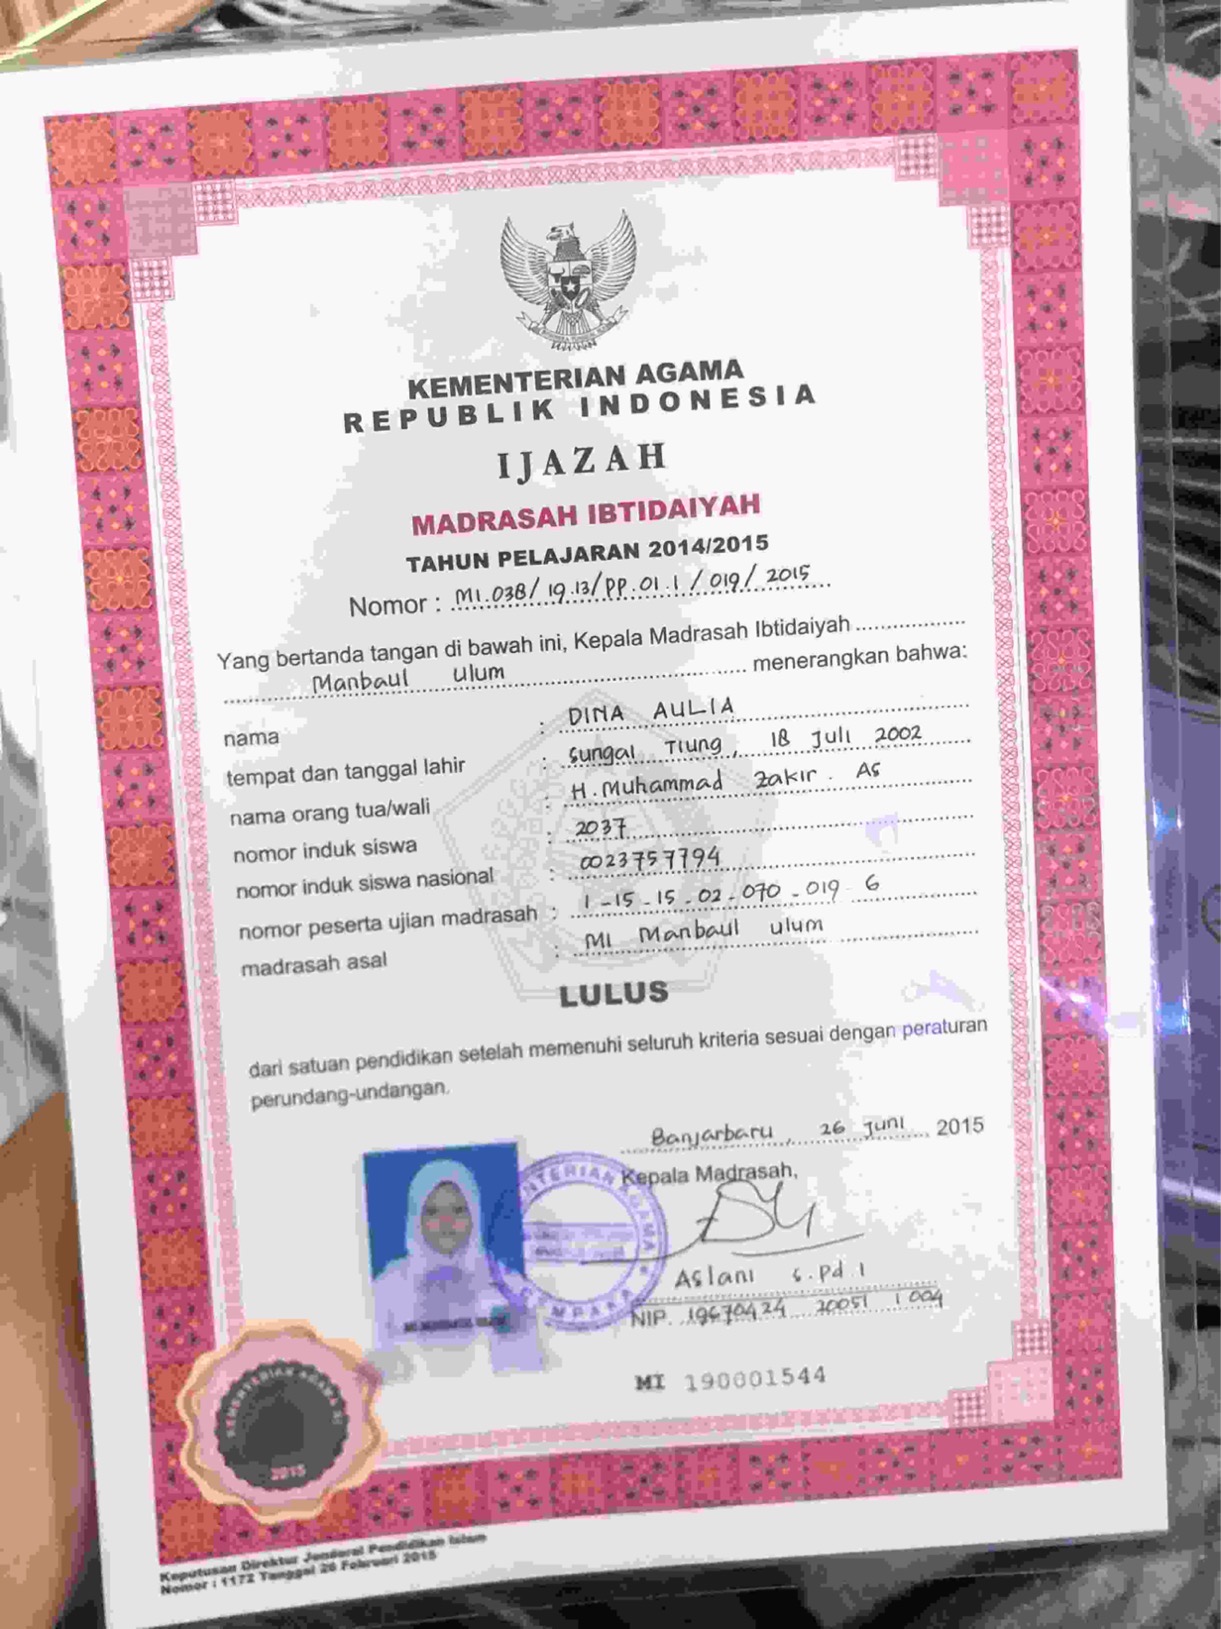 KEMENTERIAN AGAMA
REPUBLIK INDONESIA
IJAZAH
MADRASAH IBTIDAIYAH
TAHUN PELAJARAN 2014/2015
Nomor : MI.038/19.13/PP.01.1/019/2015
Yang bertanda tangan di bawah ini, Kepala Madrasah Ibtidaiyah
Manbaul Ulum menerangkan bahwa:
nama : DINA AULIA
tempat dan tanggal lahir : Sungai Tiung, 18 Juli 2002
nama orang tua/wali : H. Muhammad Zakir. As
nomor induk siswa : 2037
nomor induk siswa nasional : 0023757794
nomor peserta ujian madrasah : 1-15-15-02-070-019-6
madrasah asal : MI Manbaul ulum
LULUS
dari satuan pendidikan setelah memenuhi seluruh kriteria sesuai dengan peraturan
perundang-undangan.
Banjarbaru, 26 Juni 2015
Kepala Madrasah,
KEMENTERIAN AGAMA
CEMPAKA
Aslani S.Pd.I
NIP. 19670424 20051 1 004
MI 190001544
KEMENTERIAN AGAMA RI
2015
Keputusan Direktur Jenderal Pendidikan Islam
Nomor : 1172 Tanggal 26 Februari 2015